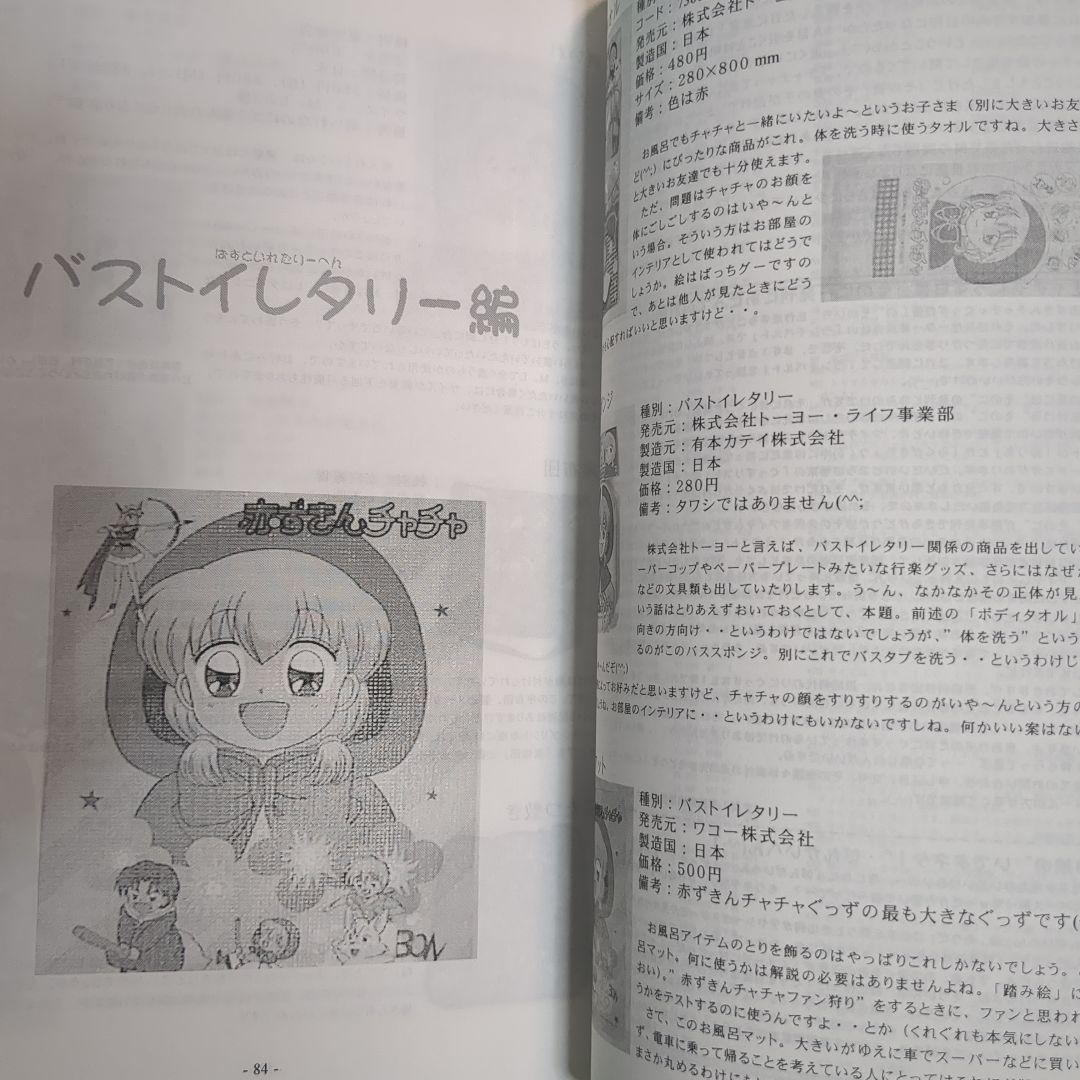 ばすといれたりーへん
バストイレタリー編
赤ずきんチャチャ
BON
- 84 -
種別
コード：
発売元：株式会社トー
製造国：日本
価格：480円
サイズ：280×800 mm
備考：色は赤
お風呂でもチャチャと一緒にいたいよ～というお子さま（別に大きいお友
ど(^^;)にぴったりな商品がこれ。体を洗う時に使うタオルですね。大きさ
と大きいお友達でも十分使えます。
ただ、問題はチャチャのお顔を
体にごしごしするのはいや～んと
いう場合。そういう方はお部屋の
インテリアとして使われてはどうで
しょうか。絵はばっちグーですの
で、あとは他人が見たときにどう
配すればいいと思いますけど・・。
ンジ
種別：バストイレタリー
発売元：株式会社トーヨー・ライフ事業部
製造元：有本カテイ株式会社
製造国：日本
価格：280円
備考：タワシではありません(^^;
株式会社トーヨーと言えば、バストイレタリー関係の商品を出してい
ーパーコップやペーパープレートみたいな行楽グッズ、さらにはなぜ
などの文具類も出していたりします。う～ん、なかなかその正体が見
いう話はとりあえずおいておくとして、本題。前述の「ボディタオル」
向きの方向け・・というわけではないでしょうが、”体を洗う”という
るのがこのバススポンジ。別にこれでバスタブを洗う・・というわけじ
ーんだぞ(^^;)
よってお好みだと思いますけど、チャチャの顔をすりすりするのがいや～んという方の
ね。お部屋のインテリアに・・というわけにもいかないですしね。何かいい案はない
ット
種別：バストイレタリー
発売元：ワコー株式会社
製造国：日本
価格：500円
備考：赤ずきんチャチャぐっずの最も大きなぐっずです(
お風呂アイテムのとりを飾るのはやっぱりこれしかないでしょう。
呂マット。何に使うかは解説の必要はありませんよね。「踏み絵」に
おい)。”赤ずきんチャチャファン狩り”をするときに、ファンと思われ
うかをテストするのに使うんですよ・・とか（くれぐれも本気にしない
さて、このお風呂マット。大きいがゆえに車でスーパーなどに買い
ず、電車に乗って帰ることを考えている人にとっては
まさか丸めるわけにも